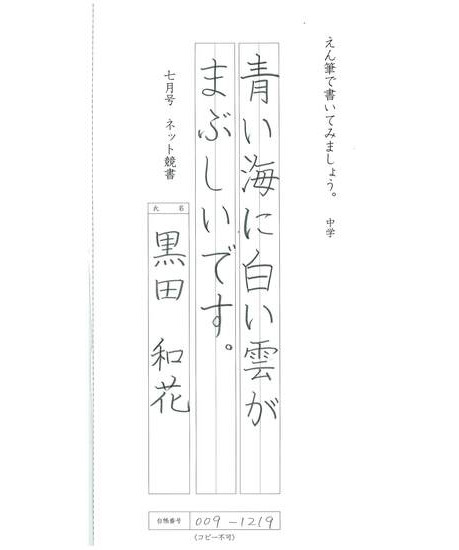 えん筆で書いてみましょう。 中学
青い海に白い雲が
まぶしいです。
七月号 ネット競書
氏名
黒田 和花
台帳番号 009-1219
(コピー不可)